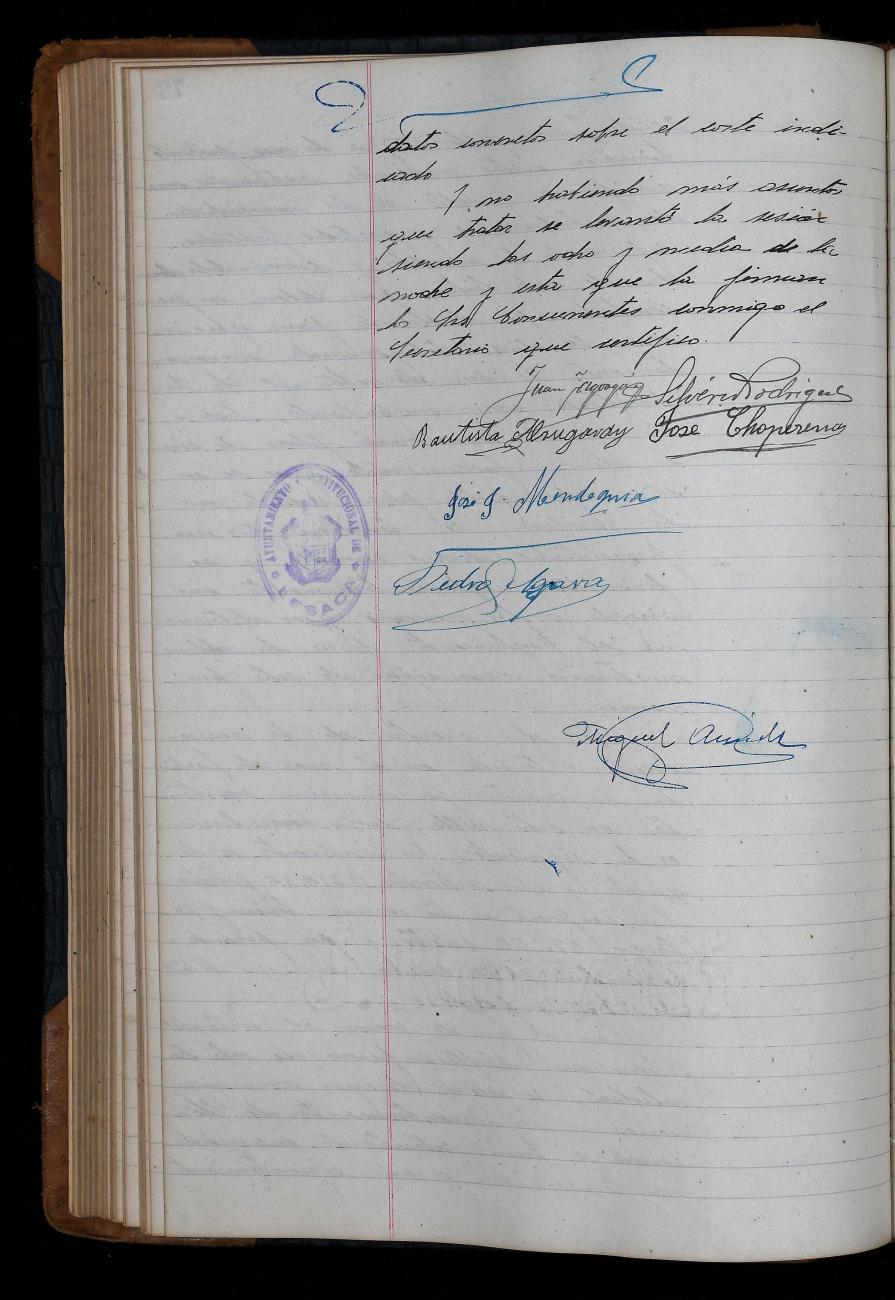 datos concretos sobre el coste indi-
cado
Y no habiendo más asuntos
que tratar se levantó la sesión
siendo las ocho y media de la
noche y esta que la firman
los Sres Concurrentes conmigo el
Secretario que certifico.
Juan Silverio Rodriguez
Bautista José Choperena
José J. Mendeguia
Pedro
Miguel
AYUNTAMIENTO CONSTITUCIONAL DE
LESACA